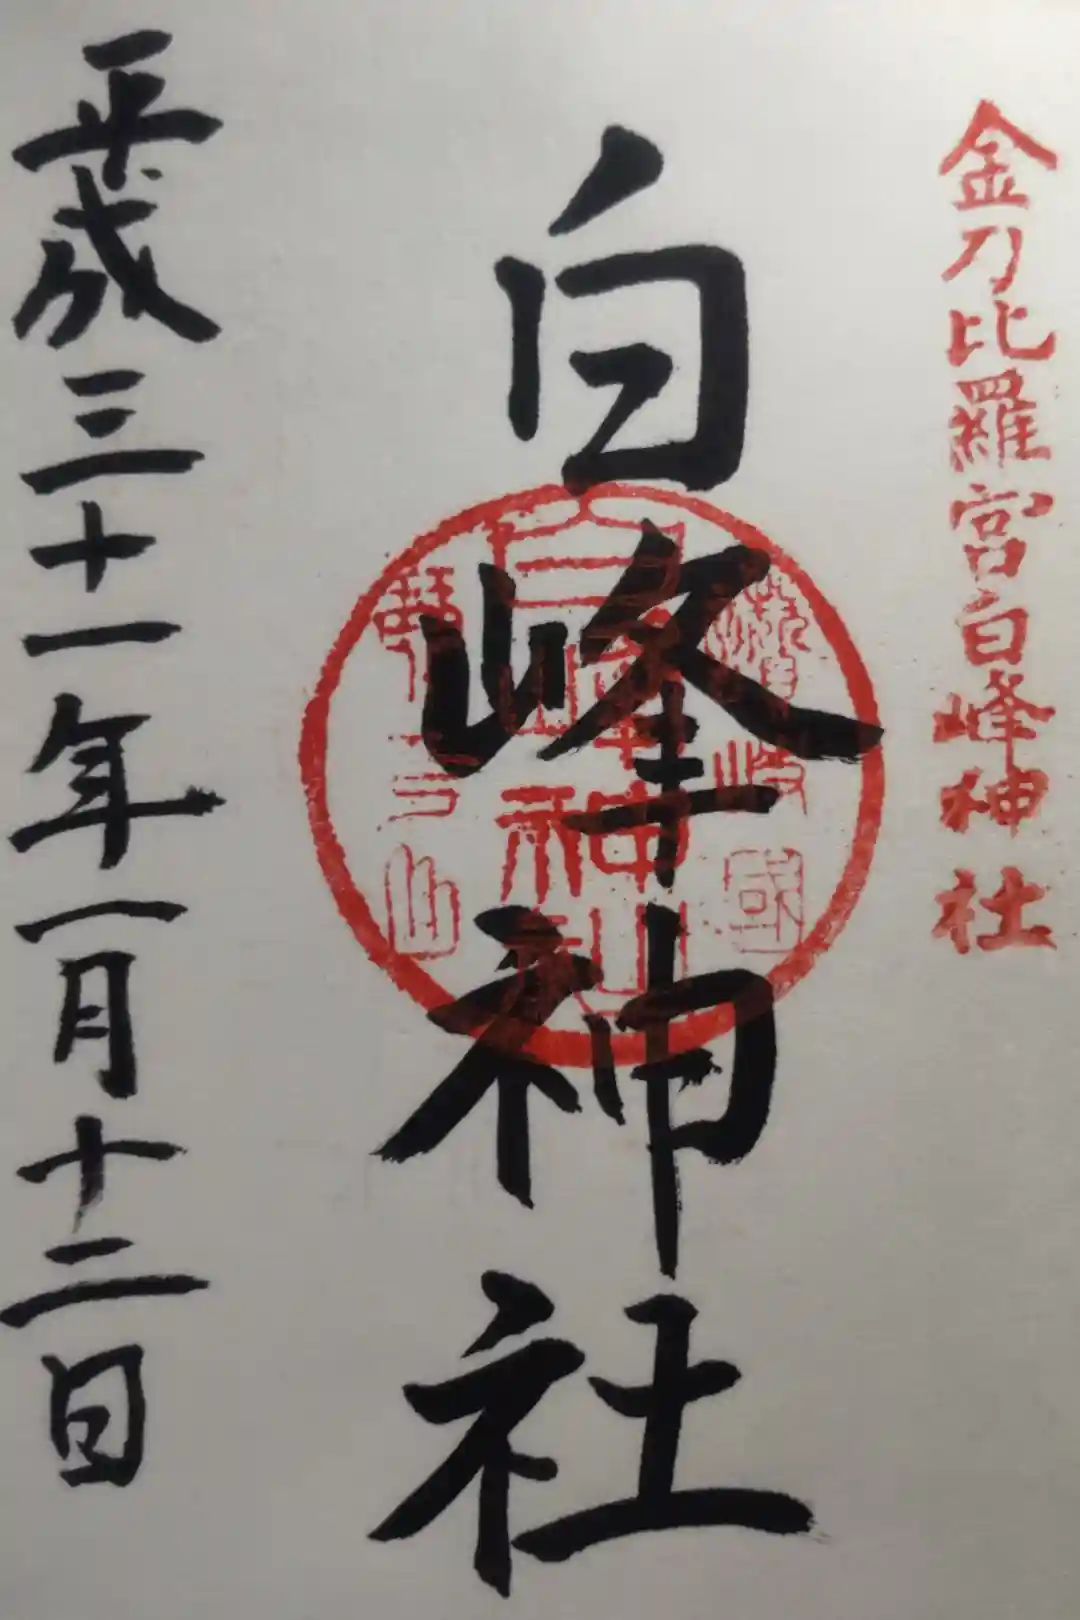 金刀比羅宮白峰神社
白峰神社
讃岐國
白峰神社
琴平山
平成三十一年一月十二日